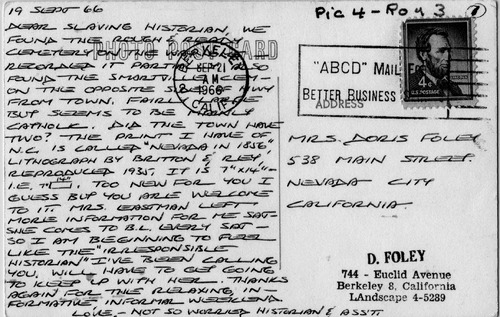 19 SEPT 66
Pic 4 - Row 3
DEAR SLAVING HISTORIAN, WE
FOUND THE ROUGH & READY
CEMETERY ON THE WAY
RECORDED IT PARTIALLY. ALSO
FOUND THE SMARTVILLE CEM-
ON THE OPPOSITE SIDE OF HWY
FROM TOWN. FAIRLY
BUT SEEMS TO BE MAINLY
CATHOLIC. DID THE TOWN HAVE
TWO? THE PRINT I HAVE OF
N.C. IS CALLED "NEVADA IN 1856",
LITHOGRAPH BY BRITTON & REY,
REPRODUCED 1935. IT IS 7"X14"-
I.E. 7" 14". TOO NEW FOR YOU I
GUESS BUT YOU ARE WELCOME
TO IT. MRS. EASTMAN LEFT
MORE INFORMATION FOR ME SAT-
SHE COMES TO B.L. EVERY SAT-
SO I AM BEGINNING TO FEEL
LIKE THE "IRRESPONSIBLE
HISTORIAN" I'VE BEEN CALLING
YOU. WILL HAVE TO GET GOING
TO KEEP UP WITH HER. THANKS
AGAIN FOR THE RELAXING, IN-
FORMATIVE, INFORMAL WEEKEND.
LOVE - NOT SO WORRIED HISTORIAN & ASS'T
PHOTO POST CARD
BERKELEY
SEP 21
AM
1966
CALIF.
"ABCD" MAIL
BETTER BUSINESS
ADDRESS
4¢
U.S. POSTAGE
MRS. DORIS FOLEY
538 MAIN STREET.
NEVADA CITY
CALIFORNIA.
D. FOLEY
744 - Euclid Avenue
Berkeley 8, California
LAndscape 4-5289